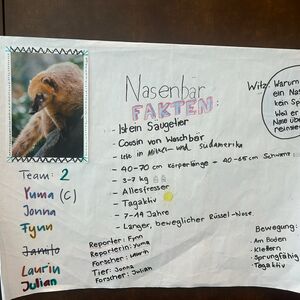 Nasenbär
FAKTEN:
- Ist ein Säugetier
- Cousin von Waschbär
- Lebt in Mittel- und Südamerika
- 40-70 cm Körperlänge - 40-65cm Schwanz
- 3-7 kg
- Allesfresser
- Tagaktiv
- 7-14 Jahre
- Langer, beweglicher Rüssel-Nase.
Witz: Warum
ein Nas
kein Sp
Weil er
Nase übe
reinste
Team: 2
Yuma (C)
Jonna
Fynn
Jamilo
Laurin
Julian
Reporter: Fynn
Reporterin: Yuma
Forscher: Laurin
Tier: Jonna
Forscher: Julian
Bewegung:
- Am Boden
- Klettern
- Sprungfähig
- Tagaktiv